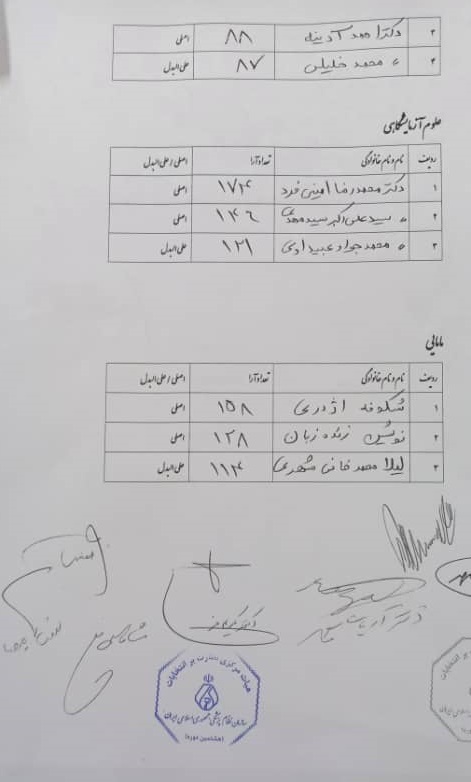 ۲ دکتر احمد آدینه ۸۸ اصلی
۳ " محمد خلیلی ۸۷ علی‌البدل
علوم آزمایشگاهی
ردیف نام و نام خانوادگی تعداد آرا اصلی / علی‌البدل
۱ دکتر محمدرضا امینی فرد ۱۷۴ اصلی
۲ " سید علی اکبر سید مهدی ۱۴۶ اصلی
۳ " محمد جواد عبیداوی ۱۲۱ علی‌البدل
مامایی
ردیف نام و نام خانوادگی تعداد آرا اصلی / علی‌البدل
۱ شکوفه اژدری ۱۵۸ اصلی
۲ نوشین زنده زبان ۱۲۸ اصلی
۳ لیلا محمدخانی شهری ۱۱۴ علی‌البدل
هیأت مرکزی نظارت بر انتخابات
سازمان نظام پزشکی جمهوری اسلامی ایران
(هشتمین دوره)